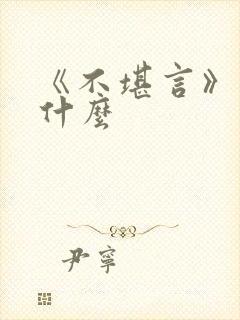 《不堪言》
什麼
尹寧